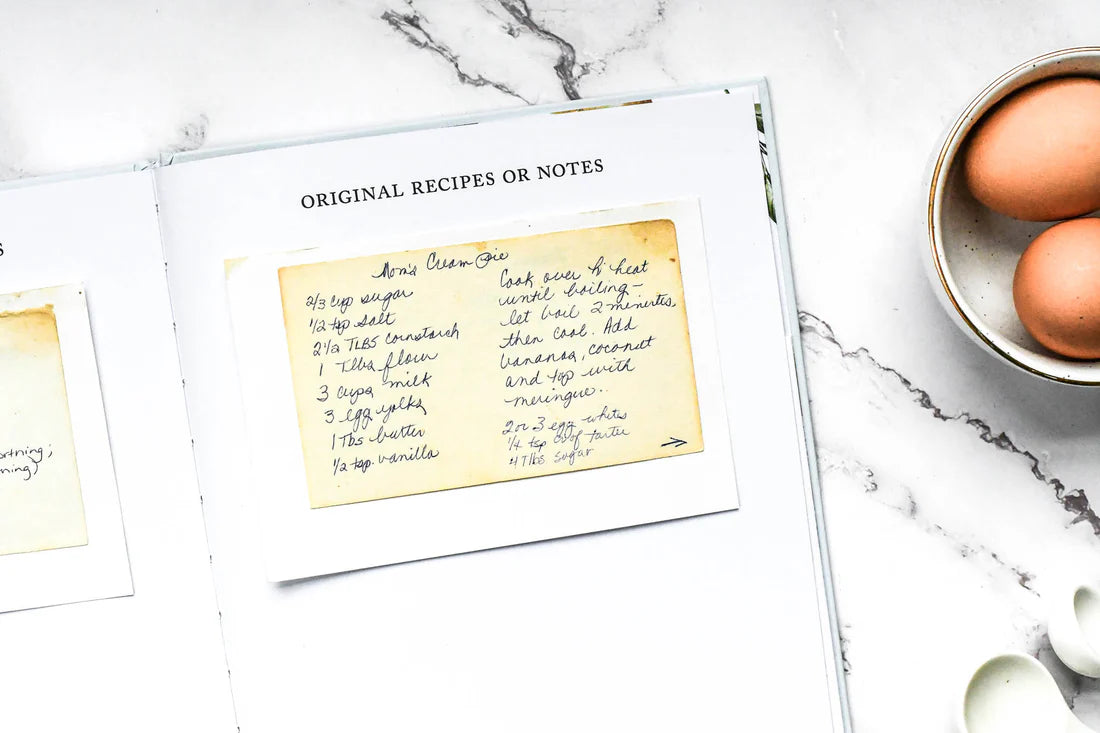 S
ORIGINAL RECIPES OR NOTES
Mom's Cream Pie
2/3 cup sugar
1/2 tsp salt
2 1/2 TLBS cornstarch
1 Tlbs flour
3 cups milk
3 egg yolks
1 Tbs butter
1/2 tsp. vanilla
Cook over hi heat
until boiling-
let boil 2 minutes
then cool. Add
bananas, coconut
and top with
meringue..
2 or 3 egg whites
1/4 tsp c of tarter
4 Tlbs. sugar
ortning;
ning)